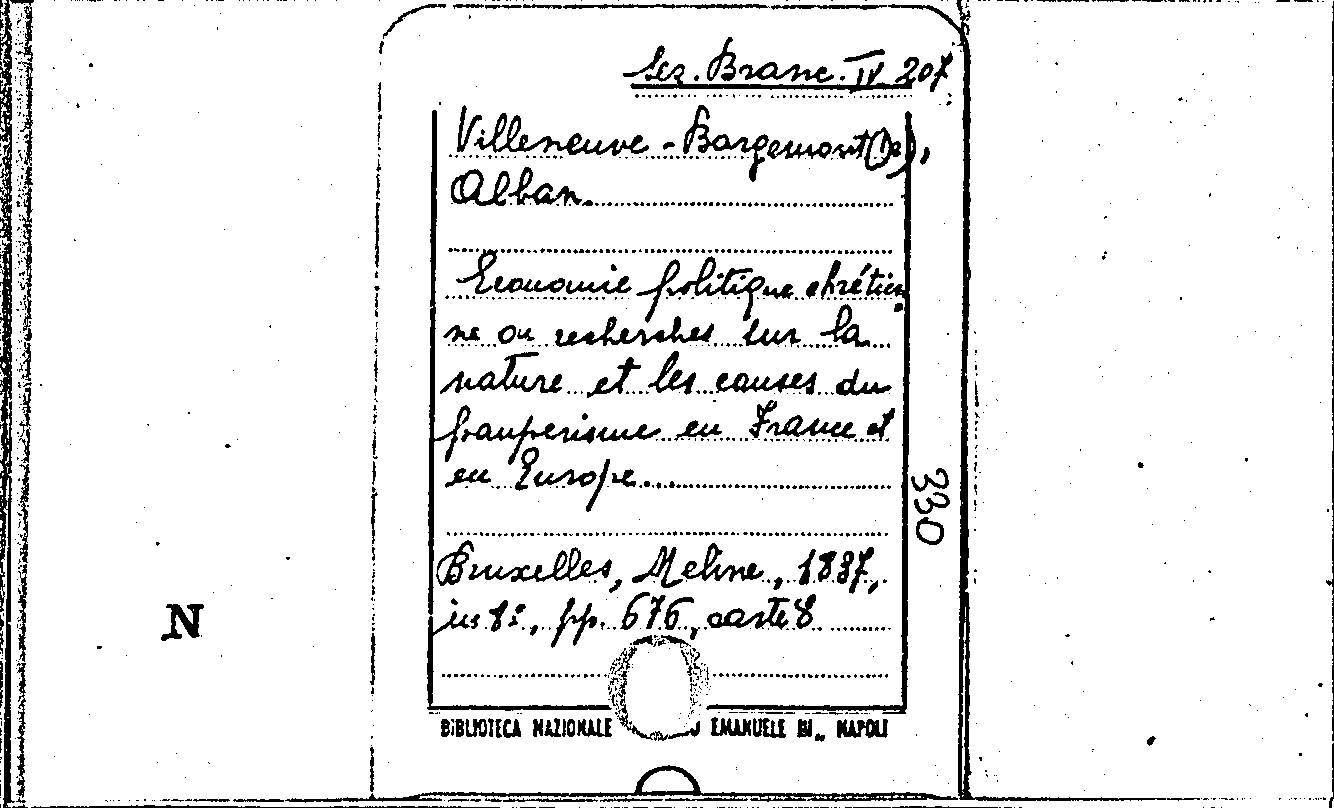 Sez. Branc. IV 207
Villeneuve - Bargemont (De),
Alban.
Economie politique chrétien
ne ou recherches sur la
nature et les causes du
pauperisme en France et
en Europe...
330
Bruxelles, Meline, 1837,
in 8º, pp. 676, carte 8
N
BIBLIOTECA NAZIONALE EMANUELE III" NAPOLI